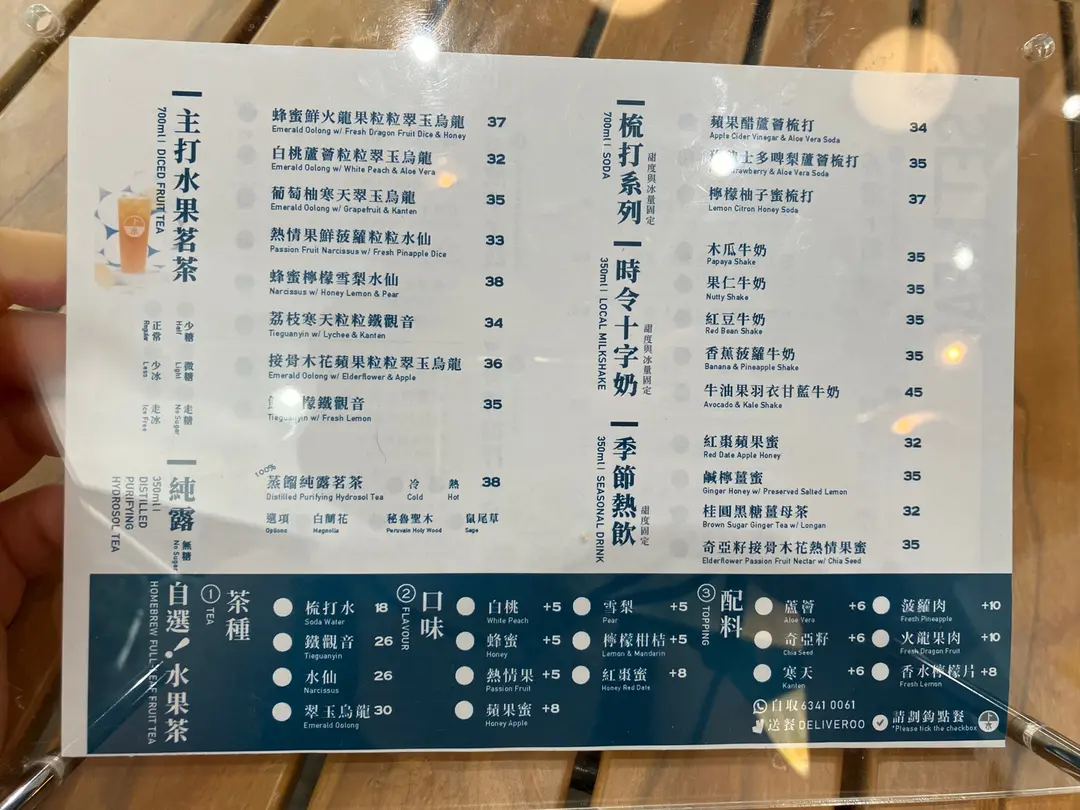 主打水果茗茶
700ml | DICED FRUIT TEA
蜂蜜鮮火龍果粒粒翠玉烏龍 37
Emerald Oolong w/ Fresh Dragon Fruit Dice & Honey
白桃蘆薈粒粒翠玉烏龍 32
Emerald Oolong w/ White Peach & Aloe Vera
葡萄柚寒天翠玉烏龍 35
Emerald Oolong w/ Grapefruit & Kanten
熱情果鮮菠蘿粒粒水仙 33
Passion Fruit Narcissus w/ Fresh Pinapple Dice
蜂蜜檸檬雪梨水仙 38
Narcissus w/ Honey Lemon & Pear
荔枝寒天粒粒鐵觀音 34
Tieguanyin w/ Lychee & Kanten
接骨木花蘋果粒粒翠玉烏龍 36
Emerald Oolong w/ Elderflower & Apple
檬鐵觀音 35
Tieguanyin w/ Fresh Lemon
正常 Regular
少冰 Less
走冰 Ice Free
少糖 Half
微糖 Light
走糖 No Sugar
純露
無糖 No Sugar
350ml |
DISTILLED
PURIFYING
HYDROSOL TEA
100%
蒸餾純露茗茶 冷 熱 38
Distilled Purifying Hydrosol Tea Cold Hot
選項 白蘭花 秘魯聖木 鼠尾草
Options Magnolia Peruvain Holy Wood Sage
梳打系列
700ml | SODA
甜度與冰量固定
蘋果醋蘆薈梳打 34
Apple Cider Vinegar & Aloe Vera Soda
士多啤梨蘆薈梳打 35
Strawberry & Aloe Vera Soda
檸檬柚子蜜梳打 37
Lemon Citron Honey Soda
時令十字奶
350ml | LOCAL MILKSHAKE
甜度與冰量固定
木瓜牛奶 35
Papaya Shake
果仁牛奶 35
Nutty Shake
紅豆牛奶 35
Red Bean Shake
香蕉菠蘿牛奶 35
Banana & Pineapple Shake
牛油果羽衣甘藍牛奶 45
Avocado & Kale Shake
季節熱飲
350ml | SEASONAL DRINK
甜度固定
紅棗蘋果蜜 32
Red Date Apple Honey
鹹檸薑蜜 35
Ginger Honey w/ Preserved Salted Lemon
桂圓黑糖薑母茶 32
Brown Sugar Ginger Tea w/ Longan
奇亞籽接骨木花熱情果蜜 35
Elderflower Passion Fruit Nectar w/ Chia Seed
自選！水果茶
HOMEBREW FULL-LEAF FRUIT TEA
1 茶種
TEA
梳打水 18
Soda Water
鐵觀音 26
Tieguanyin
水仙 26
Narcissus
翠玉烏龍 30
Emerald Oolong
2 口味
FLAVOUR
白桃 +5
White Peach
蜂蜜 +5
Honey
熱情果 +5
Passion Fruit
蘋果蜜 +8
Honey Apple
雪梨 +5
Pear
檸檬柑桔 +5
Lemon & Mandarin
紅棗蜜 +8
Honey Red Date
3 配料
TOPPING
蘆薈 +6
Aloe Vera
奇亞籽 +6
Chia Seed
寒天 +6
Kanten
菠蘿肉 +10
Fresh Pineapple
火龍果肉 +10
Fresh Dragon Fruit
香水檸檬片 +8
Fresh Lemon
自取 6341 0061
送餐 DELIVEROO
請剔鈎點餐
*Please tick the checkbox